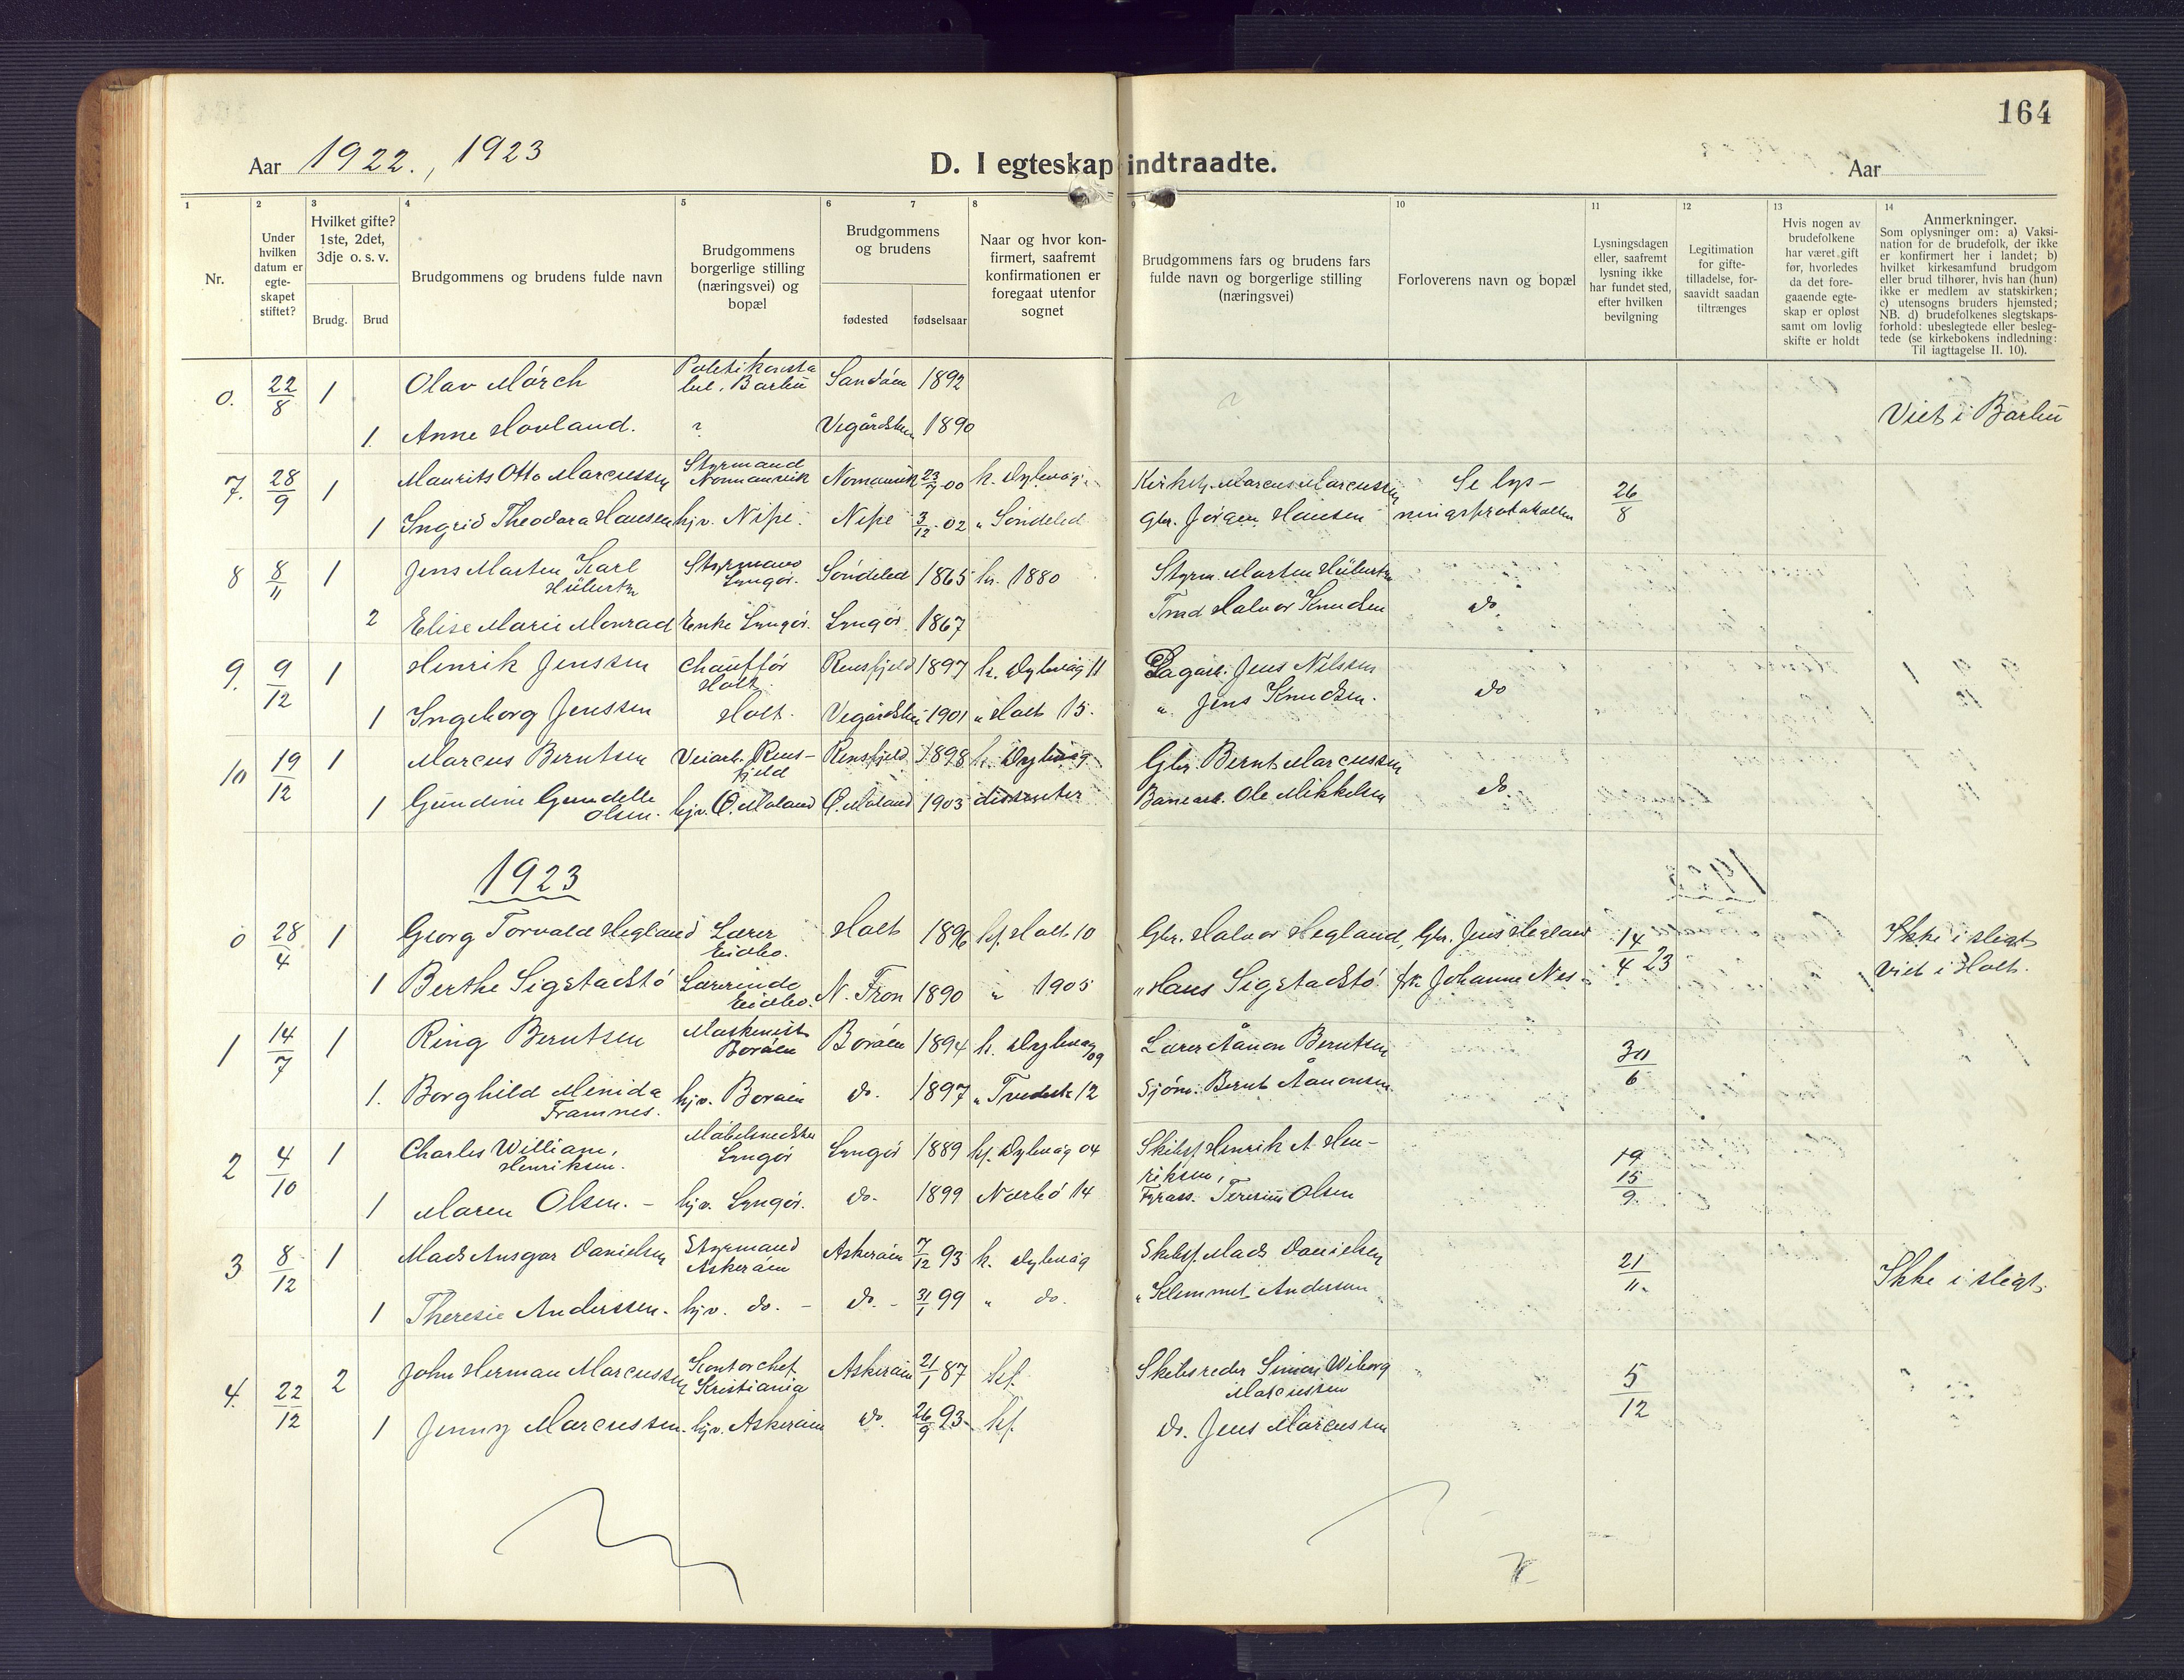 164
Aar 1922., 1923
D. I egteskap indtraadte.
Aar
1 2 3 4 5 6 7 8 9 10 11 12 13 14
Nr.
Under
hvilken
datum er
egte-
skapet
stiftet?
Hvilket gifte?
1ste, 2det,
3dje o. s. v.
Brudg. Brud
Brudgommens og brudens fulde navn
Brudgommens
borgerlige stilling
(næringsvei) og
bopæl
Brudgommens
og brudens
fødested fødselsaar
Naar og hvor kon-
firmert, saafremt
konfirmationen er
foregaat utenfor
sognet
Brudgommens fars og brudens fars
fulde navn og borgerlige stilling
(næringsvei)
Forloverens navn og bopæl
Lysningsdagen
eller, saafremt
lysning ikke
har fundet sted,
efter hvilken
bevilgning
Legitimation
for gifte-
tilladelse, for-
saavidt saadan
tiltrænges
Hvis nogen av
brudefolkene
har været gift
før, hvorledes
da det fore-
gaaende egte-
skap er opløst
samt om lovlig
skifte er holdt
Anmerkninger.
Som oplysninger om: a) Vaksi-
nation for de brudefolk, der ikke
er konfirmert her i landet; b)
hvilket kirkesamfund brudgom
eller brud tilhører, hvis han (hun)
ikke er medlem av statskirken;
c) utensogns bruders hjemsted;
NB. d) brudefolkenes slegtskaps-
forhold: ubeslegtede eller besleg-
tede (se kirkebokens indledning:
Til iagttagelse II. 10).
0. 22/8 1 Olav Mørch Politikonsta
bel. Barbu Sandøen 1892
Viet i Barbu
1. Anne Hovland. ? Vegårdshei 1890
7. 28/9 1 Maurits Otto Marcussen Styrmand
Normannvik Normannvik 23/7 00 k. Dybvåg Kirketj. Marcus Marcussen Se lys- 26/8
1 Ingrid Theodora Hansen hjv. Nipe. Nipe 3/12 02 " Söndeled Gbr. Jørgen Hansen ningsprotokollen
8 8/11 1 Jens Marten Karl
Hübert Styrmand
Lyngör. Söndeled 1865 k. 1880 Styrm. Marten Hübert
2 Elise Marie Monrad Enke Lyngör. Lyngör 1867 Tmd Halvor Knudsen do
9. 9/12 1 Henrik Jenssen Chauffør
Holt. Rensfjeld 1897 k. Dybvåg 11 Dagarb. Jens Nilsen
do
1 Ingeborg Jenssen Holt. Vegårdshei 1901 " Holt 15. " Jens Knudsen.
10 19/12 1 Marcus Berntsen Veiarb. Rens-
fjeld Rensfjeld 1898 k. Dybvåg Gbr. Bernt Marcussen
do.
1 Gundine Gundelle
Olsen. hjv. Ø. Moland Ø. Moland 1903 dissenter Banearb. Ole Mikkelsen
1923
0 28/4 1 Georg Torvald Hegland Lærer
Eidbo. Holt 1896 kf. Holt 10 Gbr. Halvor Hegland, Gbr. Jens Hegland 14/4 23 Ikke i slegt
Viet i Holt.
1 Berthe Sigstadstø Lærerinde
Eidbo. N. Fron 1890 " 1905 " Hans Sigstadstø frk. Johanne Nes
1 14/7 1 Ring Berntsen Maskinist
Borøen Borøen 1894 k. Dybvåg 09 Lærer Aanon Berntsen 30/6
1. Borghild Menida
Framnes. hjv. Borøen do. 1897 " Tvedestr. 12 Sjøm. Bernt Aanonsen
2 4/10 1 Charles William,
Henriksen. Møbelsnedker
Lyngør Lyngør 1889 kf. Dybvåg 04 Skibsf. Henrik A. Hen-
riksen, 19
15/9
1 Maren Olsen. - hjv. Lyngør. do. 1899 Nærbø 14 Fyrass. Olsen
3 8/12 1 Mads Ansgar Danielsen Styrmand
Askerøen Askerøen 7/12 93 k. Dybvåg Skibsf. Mads Danielsen 21/11. Ikke i slegt.
1 Theresie Anderssen. hjv. do. - do. - 31/1 99 " do. " Klemmet Andersen
4. 22/12 2 John Herman Marcussen Kontorchef
Kristiania Askerøen 21/1 87 kf. Skibsreder Simon Wiborg
Marcussen 5/12
1 Jenny Marcussen. hjv. Askerøen do. 26/9 93 kf. do. Jens Marcussen